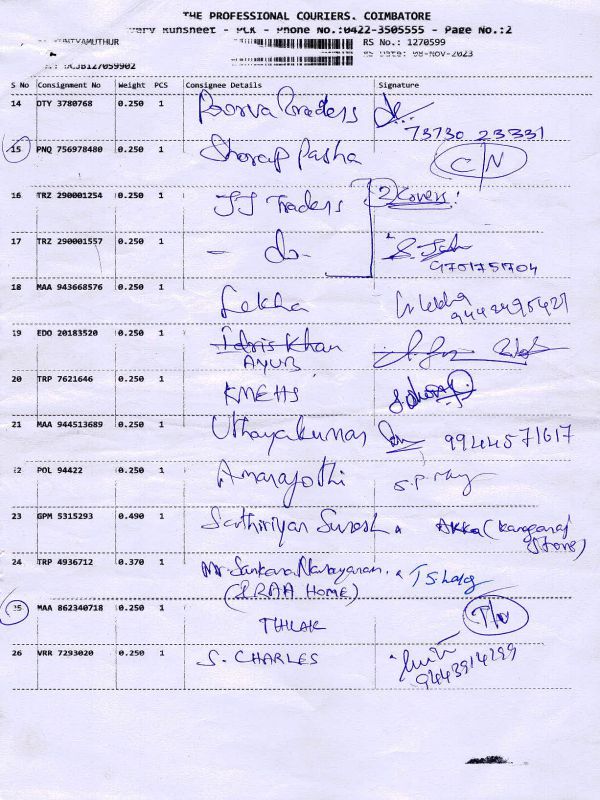 THE PROFESSIONAL COURIERS. COIMBATORE
Runsheet - PCK - Phone No.:0422-3505555 - Page No.:2
RS No.: 1270599
RS Date: 08-Nov-2023
S No Consignment No Weight PCS Consignee Details Signature
14 DTY 3780768 0.250 1 Poorva Traders
73730 23331
15 PNQ 756978480 0.250 1 Pasha C/N
16 TRZ 290001254 0.250 1 JJ Traders 2 Covers!
17 TRZ 290001557 0.250 1 - do -
9701751704
18 MAA 943668576 0.250 1 Lekha Lekha
9442495421
19 EDO 20183520 0.250 1 Idris Khan
AYUB
20 TRP 7621646 0.250 1 KMEHS
21 MAA 944513689 0.250 1 Uthayakumar 9944571617
POL 94422 0.250 1 Amarajothi S.P.
23 GPM 5315293 0.490 1 Sathiriyan Suresh Akka (Kangaraj
Store)
24 TRP 4936712 0.370 1 Mr. Sankara Narayanan
(IRAA HOME)
25 MAA 862340718 0.250 1 THILAK
26 VRR 7293020 0.250 1 S. CHARLES
9443914299